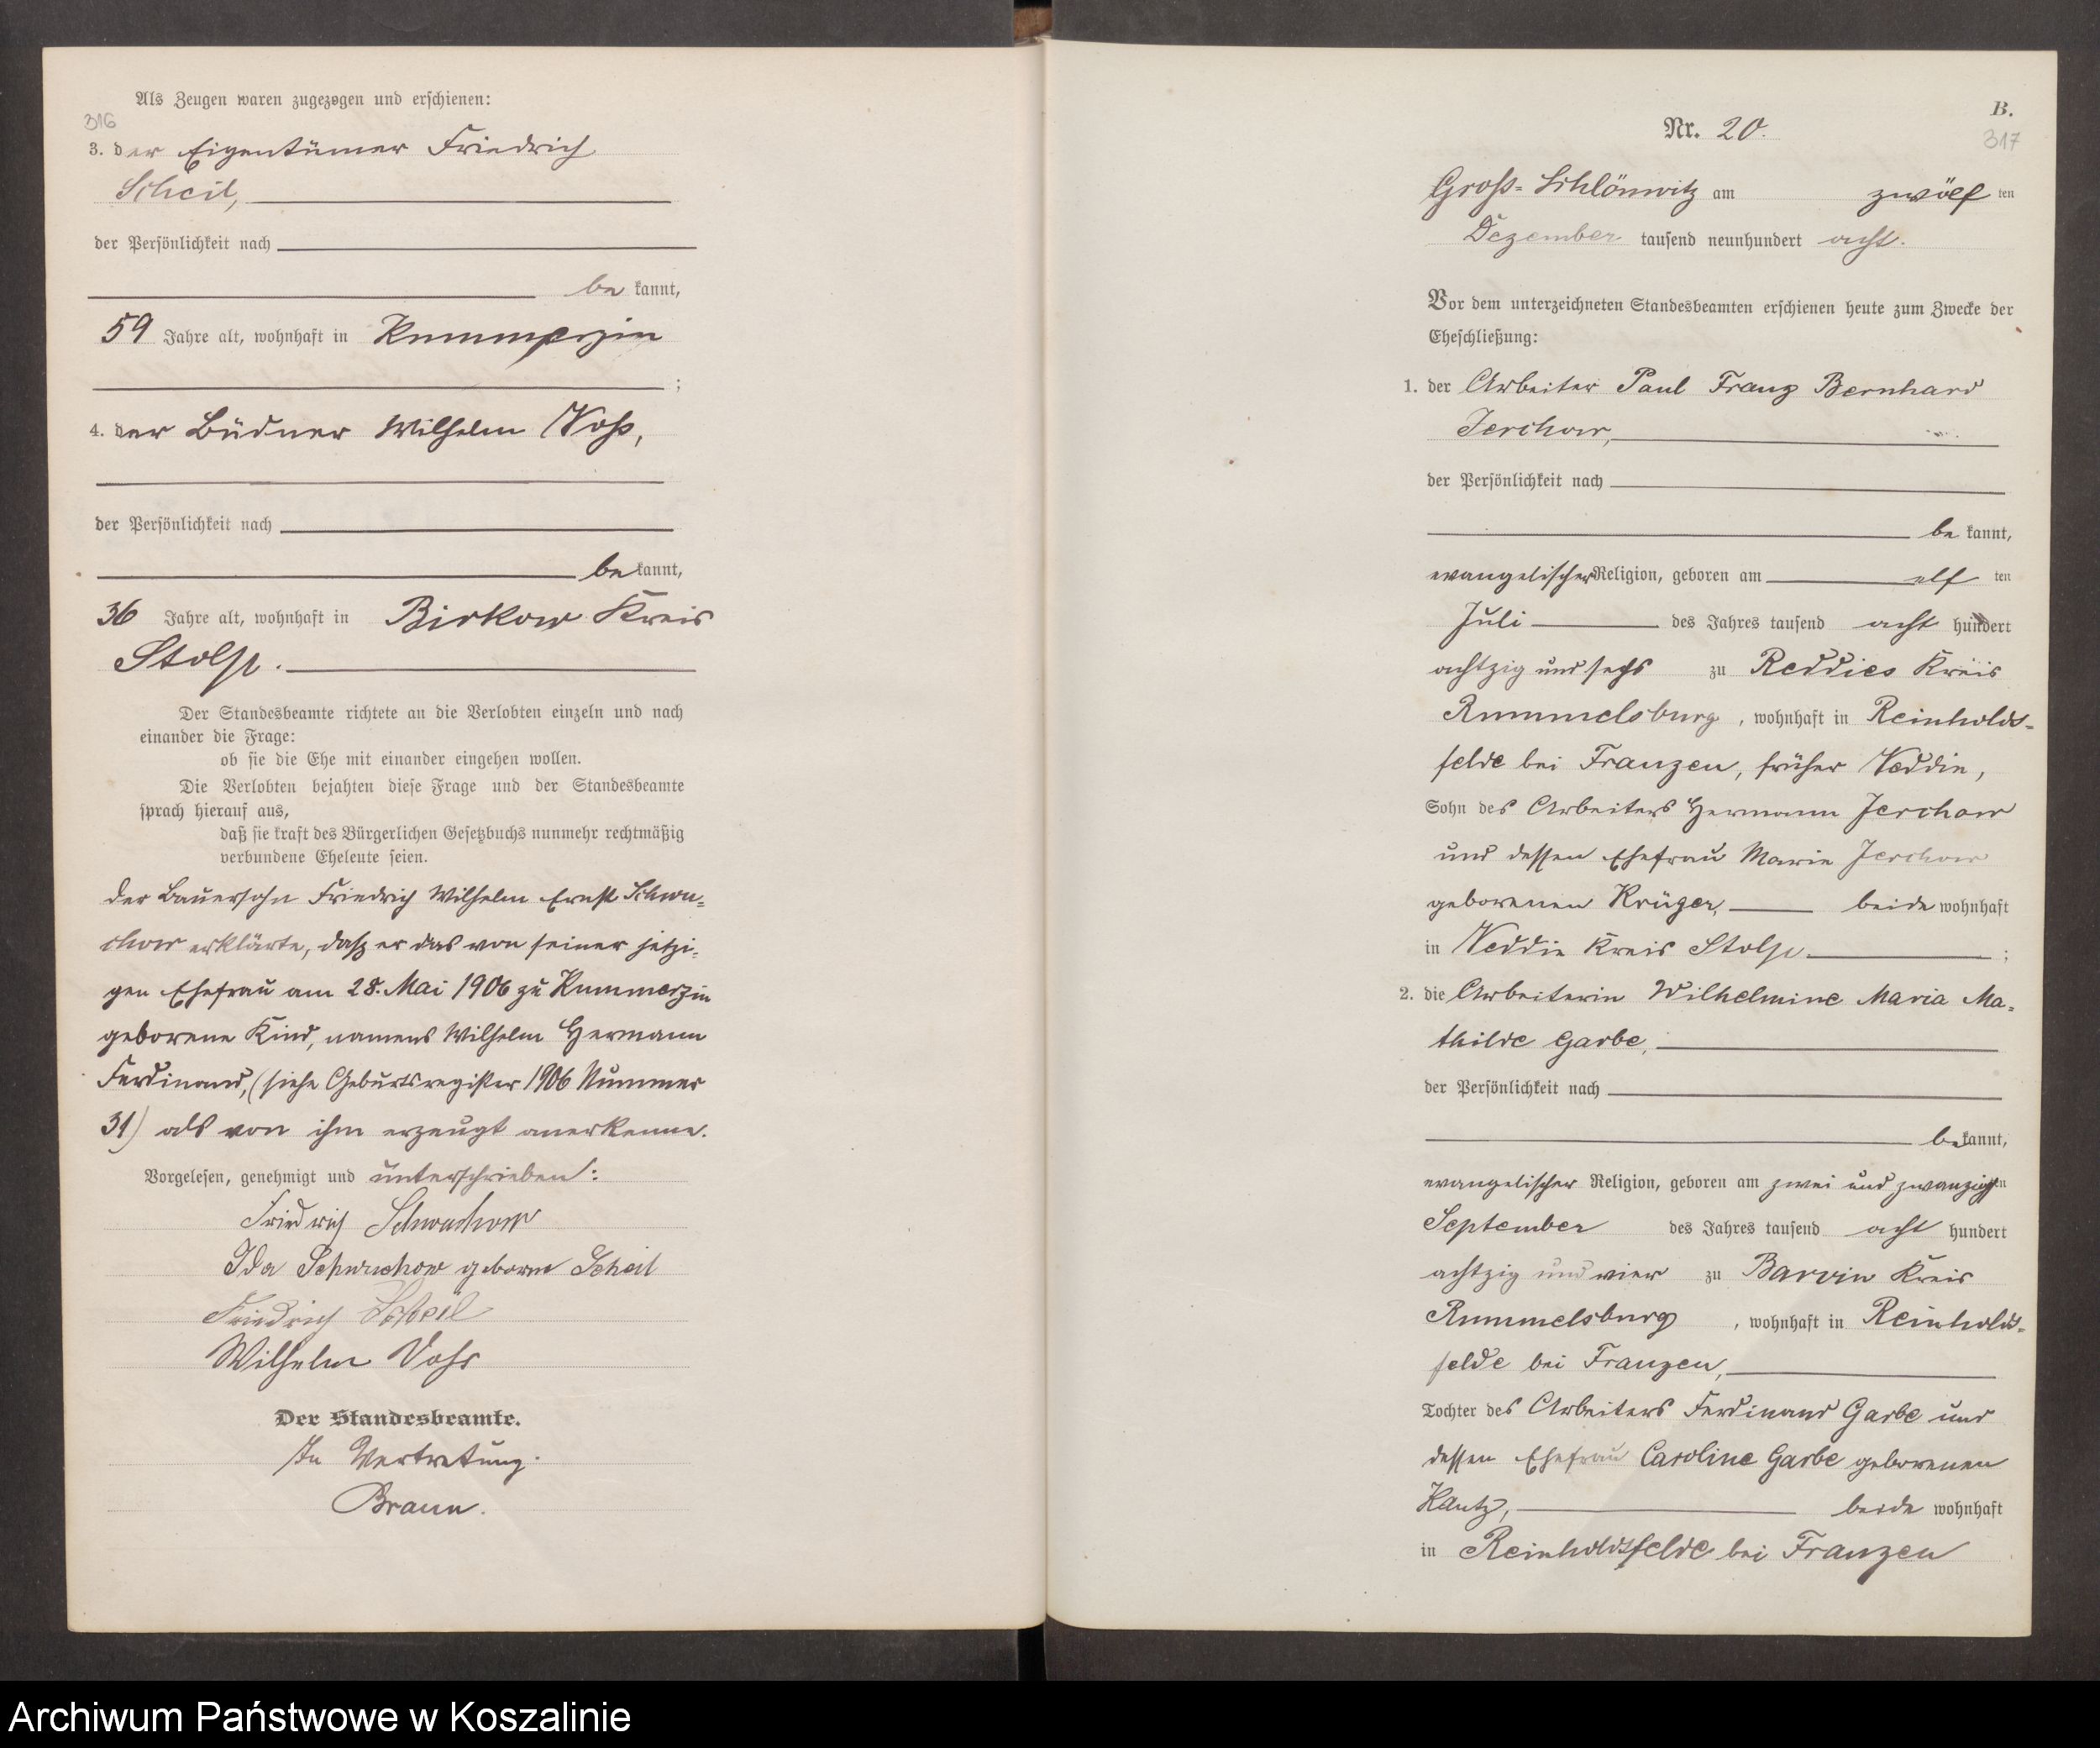 Als Zeugen waren zugezogen und erschienen:
316
3. der Eigentümer Friedrich
Scheil,
der Persönlichkeit nach
be kannt,
59 Jahre alt, wohnhaft in Kummerzin
;
4. der Büdner Wilhelm Voß,
der Persönlichkeit nach
be kannt,
36 Jahre alt, wohnhaft in Birkow Kreis
Stolp.
Der Standesbeamte richtete an die Verlobten einzeln und nach
einander die Frage:
ob sie die Ehe mit einander eingehen wollen.
Die Verlobten bejahten diese Frage und der Standesbeamte
sprach hierauf aus,
daß sie kraft des Bürgerlichen Gesetzbuchs nunmehr rechtmäßig
verbundene Eheleute seien.
Der Bauersohn Friedrich Wilhelm Ernst Schwu-
chow erklärte, daß er das von seiner jetzi-
gen Ehefrau am 28. Mai 1906 zu Kummerzin
geborene Kind, namens Wilhelm Hermann
Ferdinand, (siehe Geburtsregister 1906 Nummer
31) als von ihm erzeugt anerkenne.
Vorgelesen, genehmigt und unterschrieben:
Friedrich Schwuchow
Ida Schwuchow geborne Scheil
Friedrich Scheil
Wilhelm Vohs
Der Standesbeamte.
In Vertretung.
Braun.
B.
Nr. 20.
317
Groß-Schlönwitz am zwölf ten
Dezember tausend neunhundert acht.
Vor dem unterzeichneten Standesbeamten erschienen heute zum Zwecke der
Eheschließung:
1. der Arbeiter Paul Franz Bernhard
Jerchow,
der Persönlichkeit nach
be kannt,
evangelischer Religion, geboren am elf ten
Juli des Jahres tausend acht hundert
achtzig und sechs zu Reddies Kreis
Rummelsburg, wohnhaft in Reinholds-
felde bei Franzen, früher Veddin,
Sohn des Arbeiters Hermann Jerchow
und dessen Ehefrau Marie Jerchow
geborenen Krüger, beide wohnhaft
in Veddin Kreis Stolp. ;
2. die Arbeiterin Wilhelmine Maria Ma-
thilde Garbe,
der Persönlichkeit nach
be kannt,
evangelischer Religion, geboren am zwei und zwanzigsten
September des Jahres tausend acht hundert
achtzig und vier zu Barvin Kreis
Rummelsburg, wohnhaft in Reinholds-
felde bei Franzen,
Tochter des Arbeiters Ferdinand Garbe und
dessen Ehefrau Caroline Garbe geborenen
Kautz, beide wohnhaft
in Reinholdsfelde bei Franzen
Archiwum Państwowe w Koszalinie